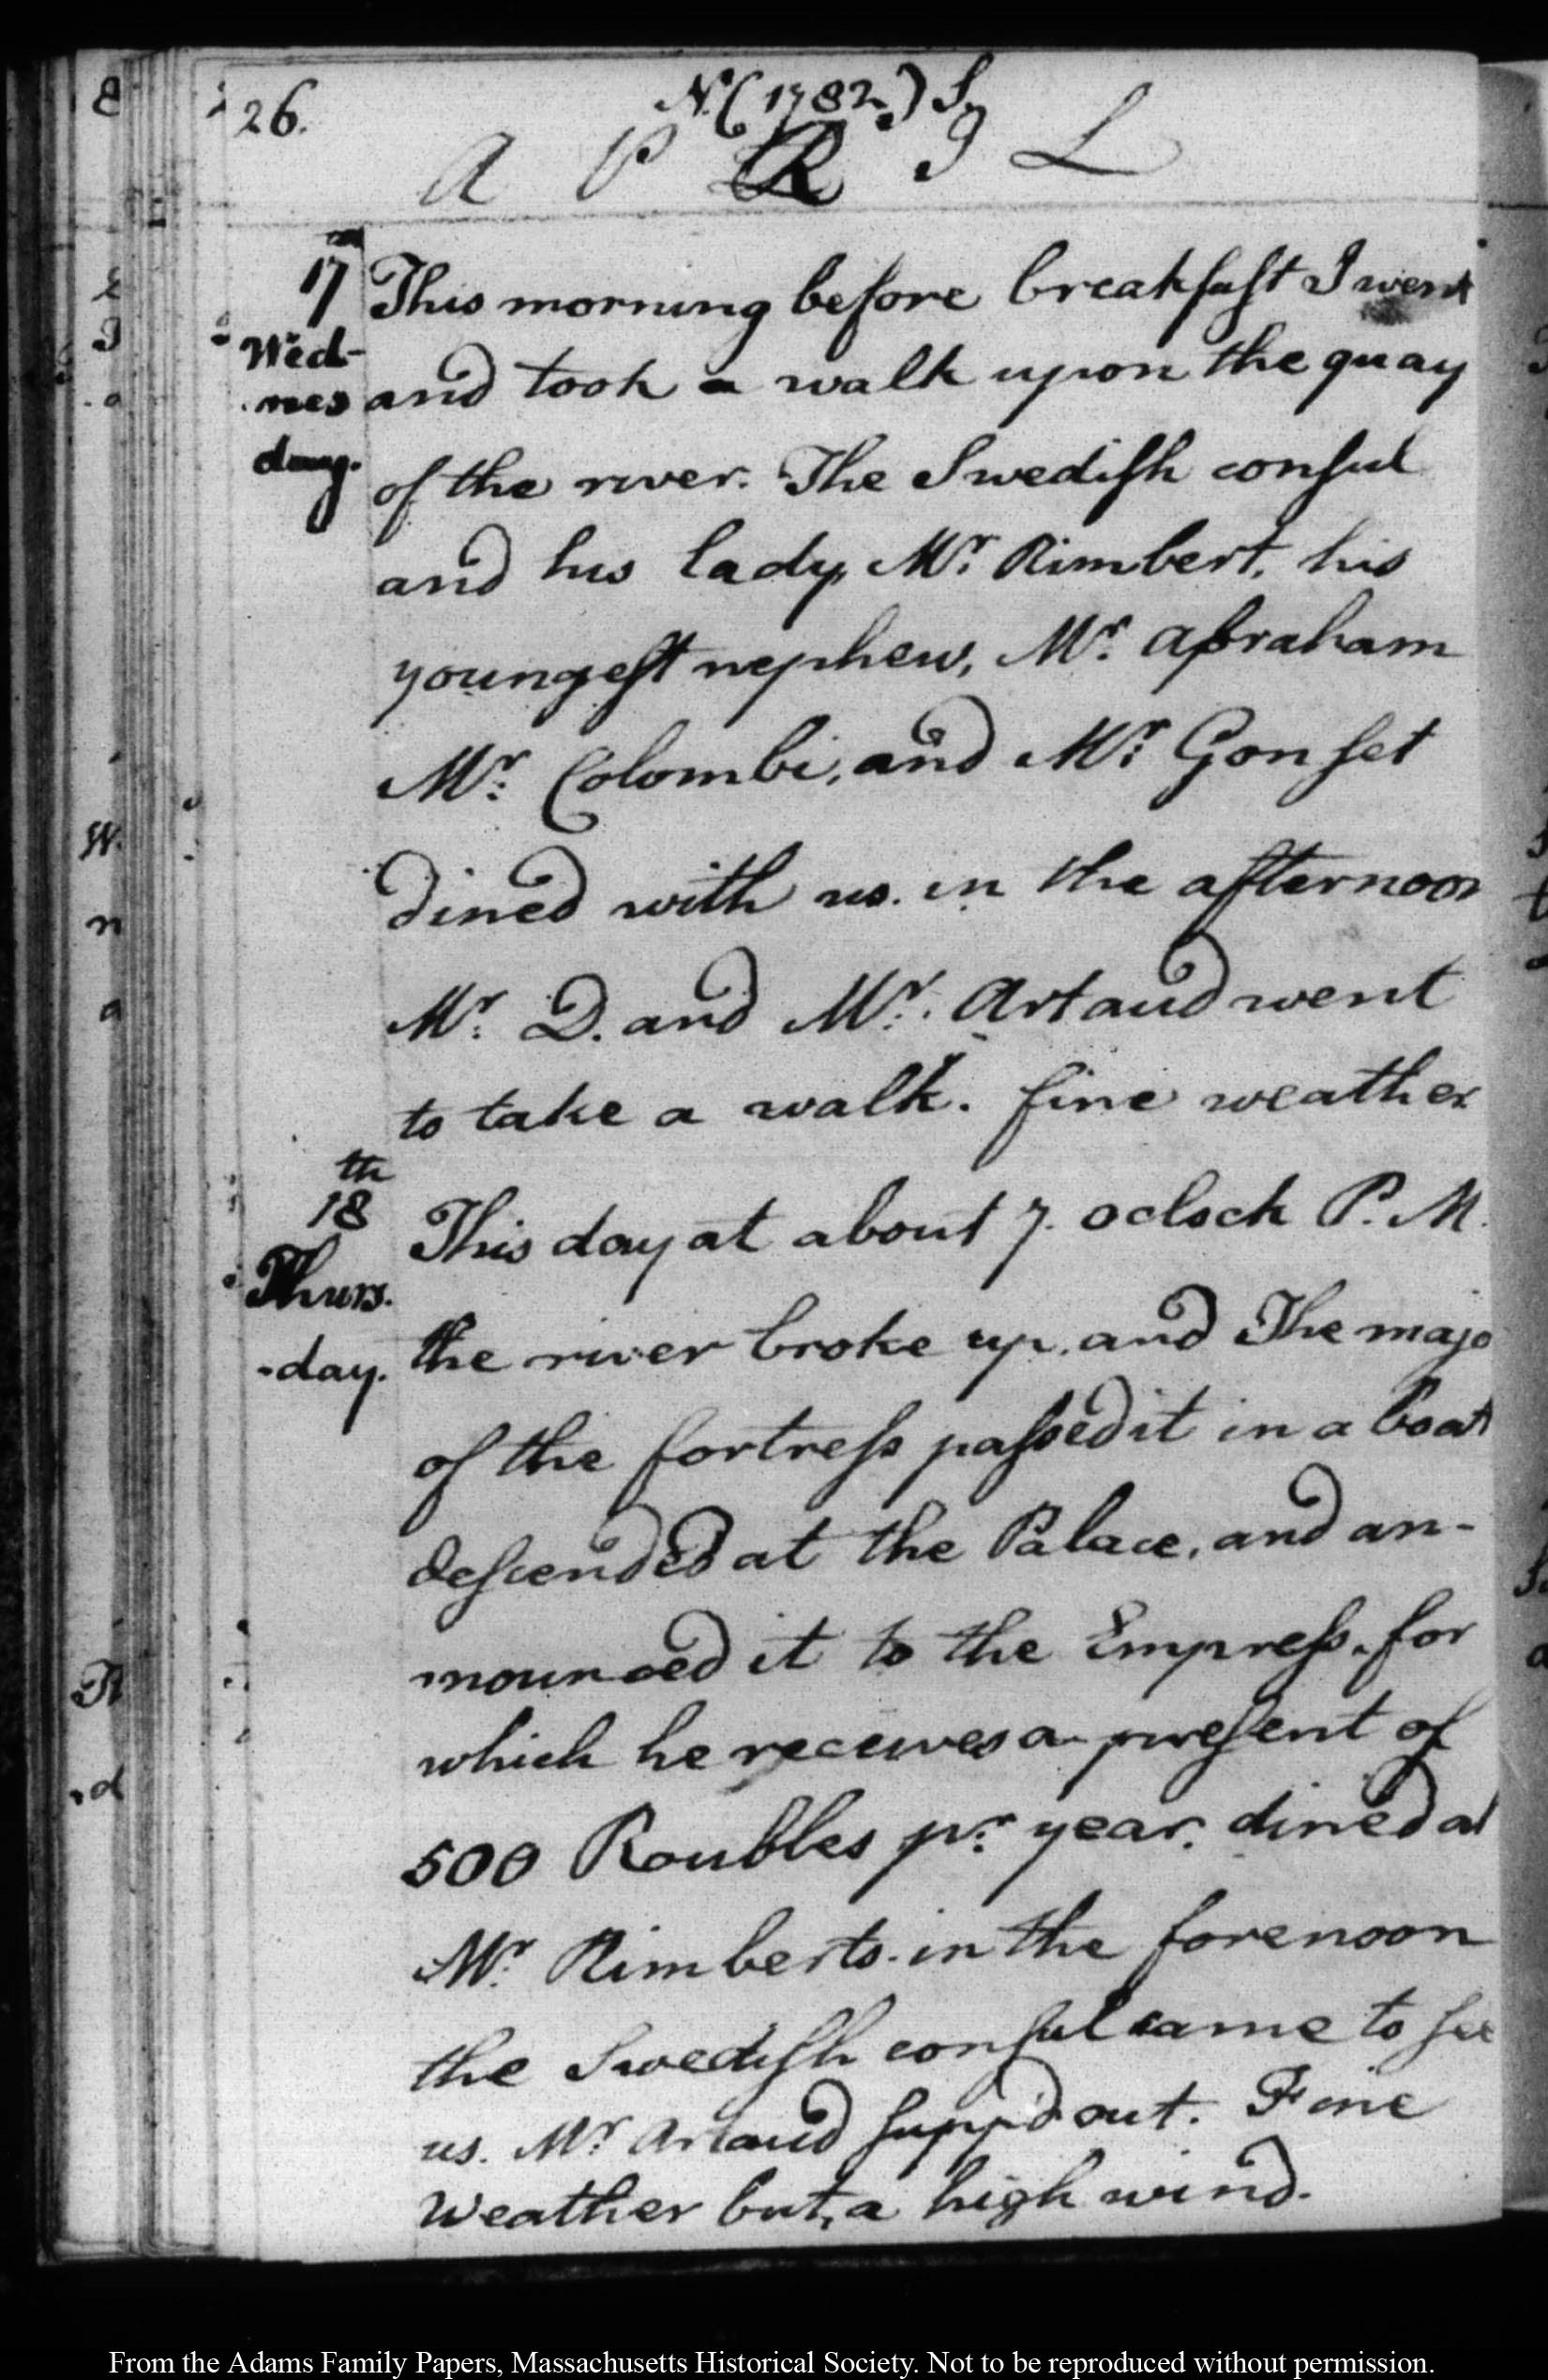 26.
N. (1782.) S.
A P R I L
17 This morning before breakfast I went
Wed-
nes and took a walk upon the quay
day. of the river. The Swedish consul
and his lady, Mr. Rimbert, his
youngest nephew, Mr. Abraham
Mr. Colombi, and Mr. Gonset
dined with us. in the afternoon
Mr. D. and Mr. Artaud went
to take a walk. fine weather
th
18 This day at about 7. oclock P. M.
Thurs.
-day. the river broke up. and The majo
of the fortress passed it in a boat
descended at the Palace, and an-
nounced it to the Empress. for
which he receives a present of
500 Roubles pr. year. dined at
Mr. Rimberts. in the forenoon
the Swedish consul came to see
us. Mr. Artaud supp'd out. Fine
Weather but, a high wind.
From the Adams Family Papers, Massachusetts Historical Society. Not to be reproduced without permission.